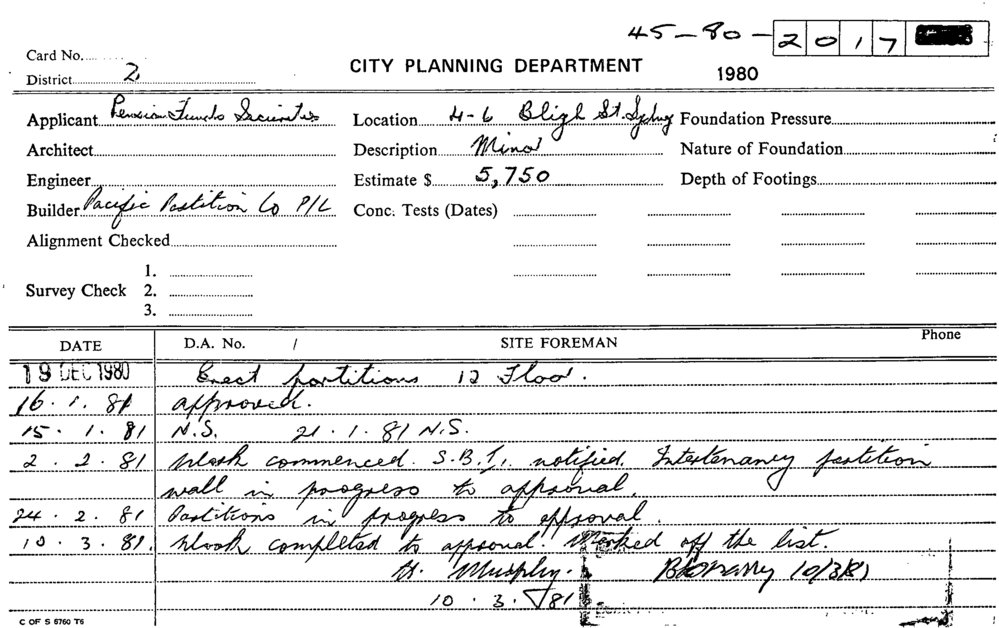 45-80-2017
Card No.
CITY PLANNING DEPARTMENT 1980
District 2
Applicant Pension Funds Securities Location 4-6 Bligh St. Sydney Foundation Pressure
Architect Description Minor Nature of Foundation
Engineer Estimate $ 5,750 Depth of Footings
Builder Pacific Partition Co P/L Conc. Tests (Dates)
Alignment Checked
1.
Survey Check 2.
3.
DATE D.A. No. / SITE FOREMAN Phone
19 DEC 1980 Erect partitions 12 Floor.
16.1.81 approved.
15.1.81 N.S. 21.1.81 N.S.
2.2.81 Work commenced. S.B.I. notified. Intertenancy partition
wall in progress to approval.
24.2.81 Partitions in progress to approval.
10.3.81. Work completed to approval. Marked off the list.
Murphy. 10/3/81
10.3.81
C OF S 6760 T6